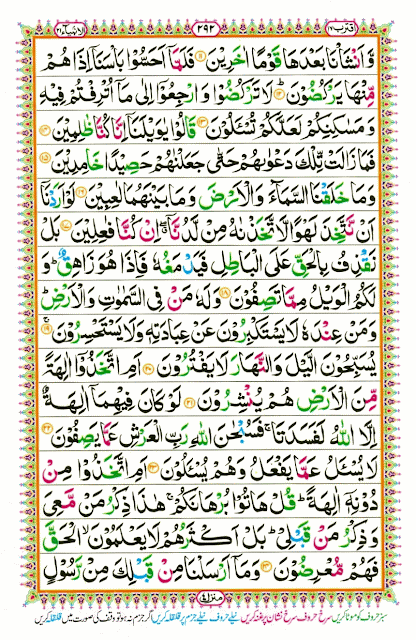 اقترب ١٧
٢٩٢
الانبیآء ٢١
وَّاَنْشَاْنَا بَعْدَهَا قَوْمًا اٰخَرِیْنَ ۝١١ فَلَمَّاۤ اَحَسُّوْا بَاْسَنَاۤ اِذَا هُمْ
مِّنْهَا یَرْكُضُوْنَ ۝١٢ لَا تَرْكُضُوْا وَارْجِعُوْۤا اِلٰی مَاۤ اُتْرِفْتُمْ فِیْهِ
وَمَسٰكِنِكُمْ لَعَلَّكُمْ تُسْـَٔلُوْنَ ۝١٣ قَالُوْا یٰوَیْلَنَاۤ اِنَّا كُنَّا ظٰلِمِیْنَ ۝١٤
فَمَا زَالَتْ تِّلْكَ دَعْوٰىهُمْ حَتّٰی جَعَلْنٰهُمْ حَصِیْدًا خٰمِدِیْنَ ۝١٥
وَمَا خَلَقْنَا السَّمَآءَ وَالْاَرْضَ وَمَا بَیْنَهُمَا لٰعِبِیْنَ ۝١٦ لَوْ اَرَدْنَاۤ
اَنْ نَّتَّخِذَ لَهْوًا لَّاتَّخَذْنٰهُ مِنْ لَّدُنَّاۤ ۖۗ اِنْ كُنَّا فٰعِلِیْنَ ۝١٧ بَلْ
نَقْذِفُ بِالْحَقِّ عَلَی الْبَاطِلِ فَیَدْمَغُهٗ فَاِذَا هُوَ زَاهِقٌ ؕ وَ
لَكُمُ الْوَیْلُ مِمَّا تَصِفُوْنَ ۝١٨ وَلَهٗ مَنْ فِی السَّمٰوٰتِ وَالْاَرْضِ ؕ
وَمَنْ عِنْدَهٗ لَا یَسْتَكْبِرُوْنَ عَنْ عِبَادَتِهٖ وَلَا یَسْتَحْسِرُوْنَ ۝١٩
یُسَبِّحُوْنَ الَّیْلَ وَالنَّهَارَ لَا یَفْتُرُوْنَ ۝٢٠ اَمِ اتَّخَذُوْۤا اٰلِهَةً
مِّنَ الْاَرْضِ هُمْ یُنْشِرُوْنَ ۝٢١ لَوْ كَانَ فِیْهِمَاۤ اٰلِهَةٌ
اِلَّا اللّٰهُ لَفَسَدَتَا ۚ فَسُبْحٰنَ اللّٰهِ رَبِّ الْعَرْشِ عَمَّا یَصِفُوْنَ ۝٢٢
لَا یُسْـَٔلُ عَمَّا یَفْعَلُ وَهُمْ یُسْـَٔلُوْنَ ۝٢٣ اَمِ اتَّخَذُوْا مِنْ
دُوْنِهٖۤ اٰلِهَةً ؕ قُلْ هَاتُوْا بُرْهَانَكُمْ ۚ هٰذَا ذِكْرُ مَنْ مَّعِیَ
وَذِكْرُ مَنْ قَبْلِیْ ؕ بَلْ اَكْثَرُهُمْ لَا یَعْلَمُوْنَ ۙ الْحَقَّ
فَهُمْ مُّعْرِضُوْنَ ۝٢٤ وَمَاۤ اَرْسَلْنَا مِنْ قَبْلِكَ مِنْ رَّسُوْلٍ
منزل ٤
سبز حروف کو موٹا کریں سرخ حروف سرخ نشان پر غنہ کریں نیلے حروف نیلے جزم پر قلقلہ کریں اگر جزم نہ ہو تو وقف کی صورت میں قلقلہ کریں